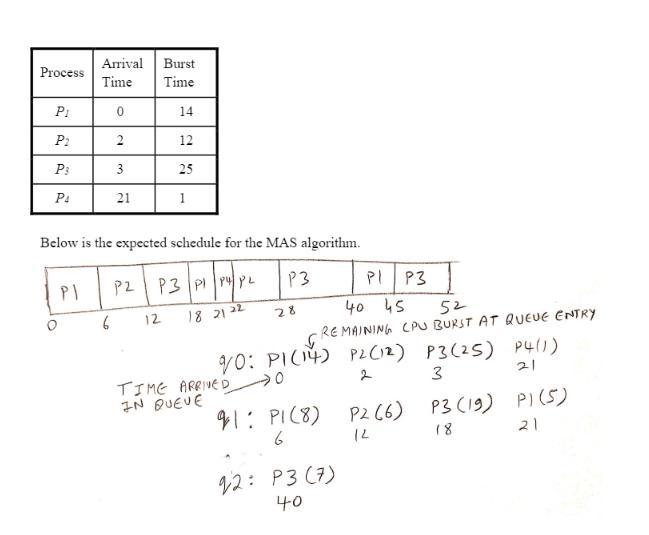 Process Arrival Time Burst Time
P1 0 14
P2 2 12
P3 3 25
P4 21 1
Below is the expected schedule for the MAS algorithm.
P1 P2 P3 P1 P4 P2 P3 P1 P3
0 6 12 18 21 22 28 40 45 52
REMAINING CPU BURST AT QUEUE ENTRY
q0: P1(14) P2(12) P3(25) P4(1)
TIME ARRIVED IN QUEUE → 0 2 3 21
q1: P1(8) P2(6) P3(19) P1(5)
6 12 18 21
q2: P3(7)
40